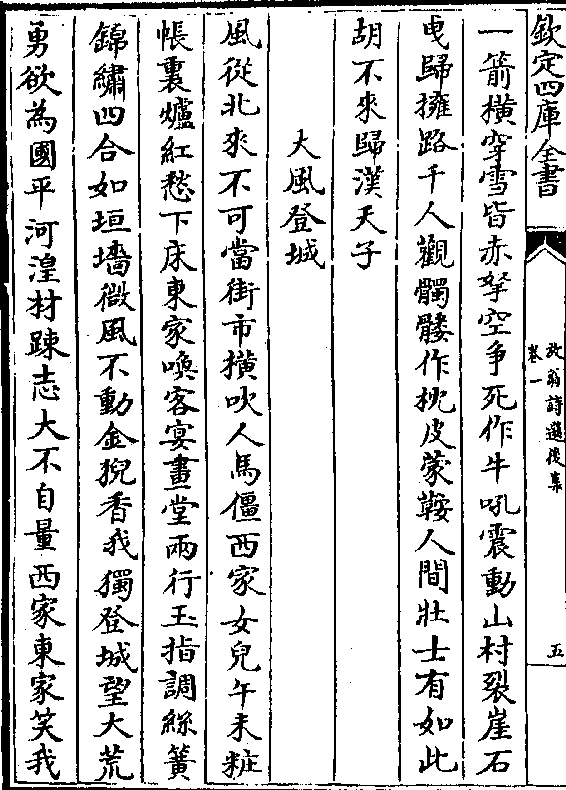 欽定四庫全書
放翁詩選後集
卷一
五
一箭橫穿雪皆赤拏空爭死作牛吼震動山村裂崖石
曳歸擁路千人觀髑髏作枕皮蒙鞍人間壯士有如此
胡不來歸漢天子
大風登城
風從北來不可當街市橫吹人馬僵西家女兒午未粧
帳裏爐紅愁下床東家喚客宴畫堂兩行玉指調絲簧
錦繡四合如垣墻微風不動金猊香我獨登城望大荒
勇欲為國平河湟材踈志大不自量西家東家笑我